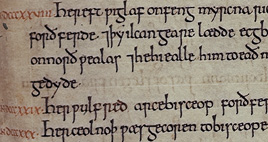 Her eft ƿiglaf onfeng myrcna ri
forð ferde. ⁊ þy ilcan geare lædde ecgb
on norð ƿealas. ⁊ he hi ealle him to ead m
gedyde.
Her ƿulfred arcebirceop forð fer
Her ceolnoþ ƿæs gecoren to birceope